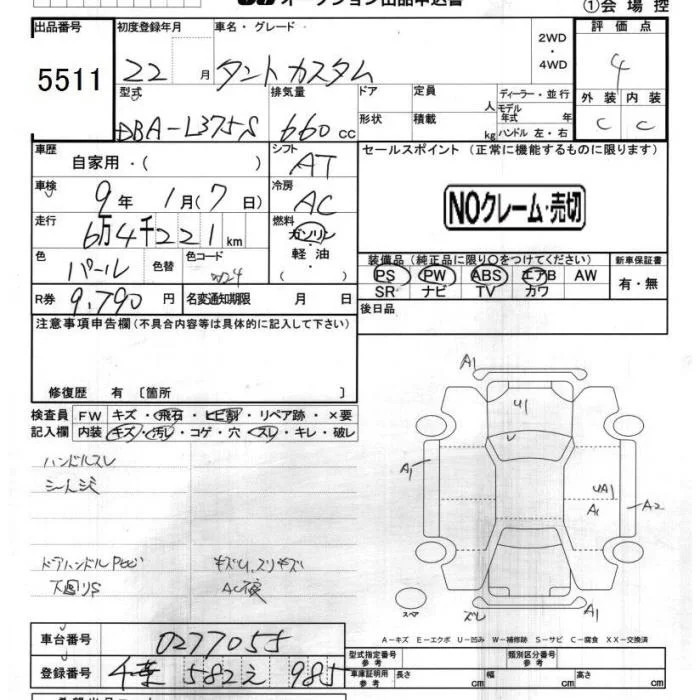 オークション出品申込書
①会場控
出品番号 初度登録年月 車名・グレード 2WD・4WD 評価点
5511 22 月 タントカスタム 4
型式 排気量 ドア 定員 人 ディーラー・並行 外装 内装
DBA-L375S 660 cc 形状 積載 kg モデル年式 年 ハンドル 左・右 C C
車歴 自家用・( ) シフト AT セールスポイント (正常に機能するものに限ります)
車検 9年 1月(7日) 冷房 AC
NOクレーム・売切
走行 6万4千221km 燃料 ガソリン・軽油・( )
色 パール 色替 色コード W24
装備品 (純正品に限り○をつけてください) 新車保証書
PS PW ABS エアB AW 有・無
SR ナビ TV カワ
R券 9,790円 名変通知期限 月 日 後日品
注意事項申告欄(不具合内容等は具体的に記入して下さい)
修復歴 有 〔箇所 〕
検査員 FW キズ・飛石・ヒビ割・リペア跡・×要
記入欄 内装 キズ・汚レ・コゲ・穴・スレ・キレ・破レ
ハンドルスレ
A1
U1
U
A1
UA1
A1
A2
下回りS
AC
スペア
ズレ
A1
A-キズ E-エクボ U-凹み W-補修跡 S-サビ C-腐食 XX-交換済
車台番号 0277055
登録番号 千葉 582 え 985
型式指定番号 参考 類別区分番号 参考
車庫証明用 参考 長さ cm 幅 cm 高さ cm